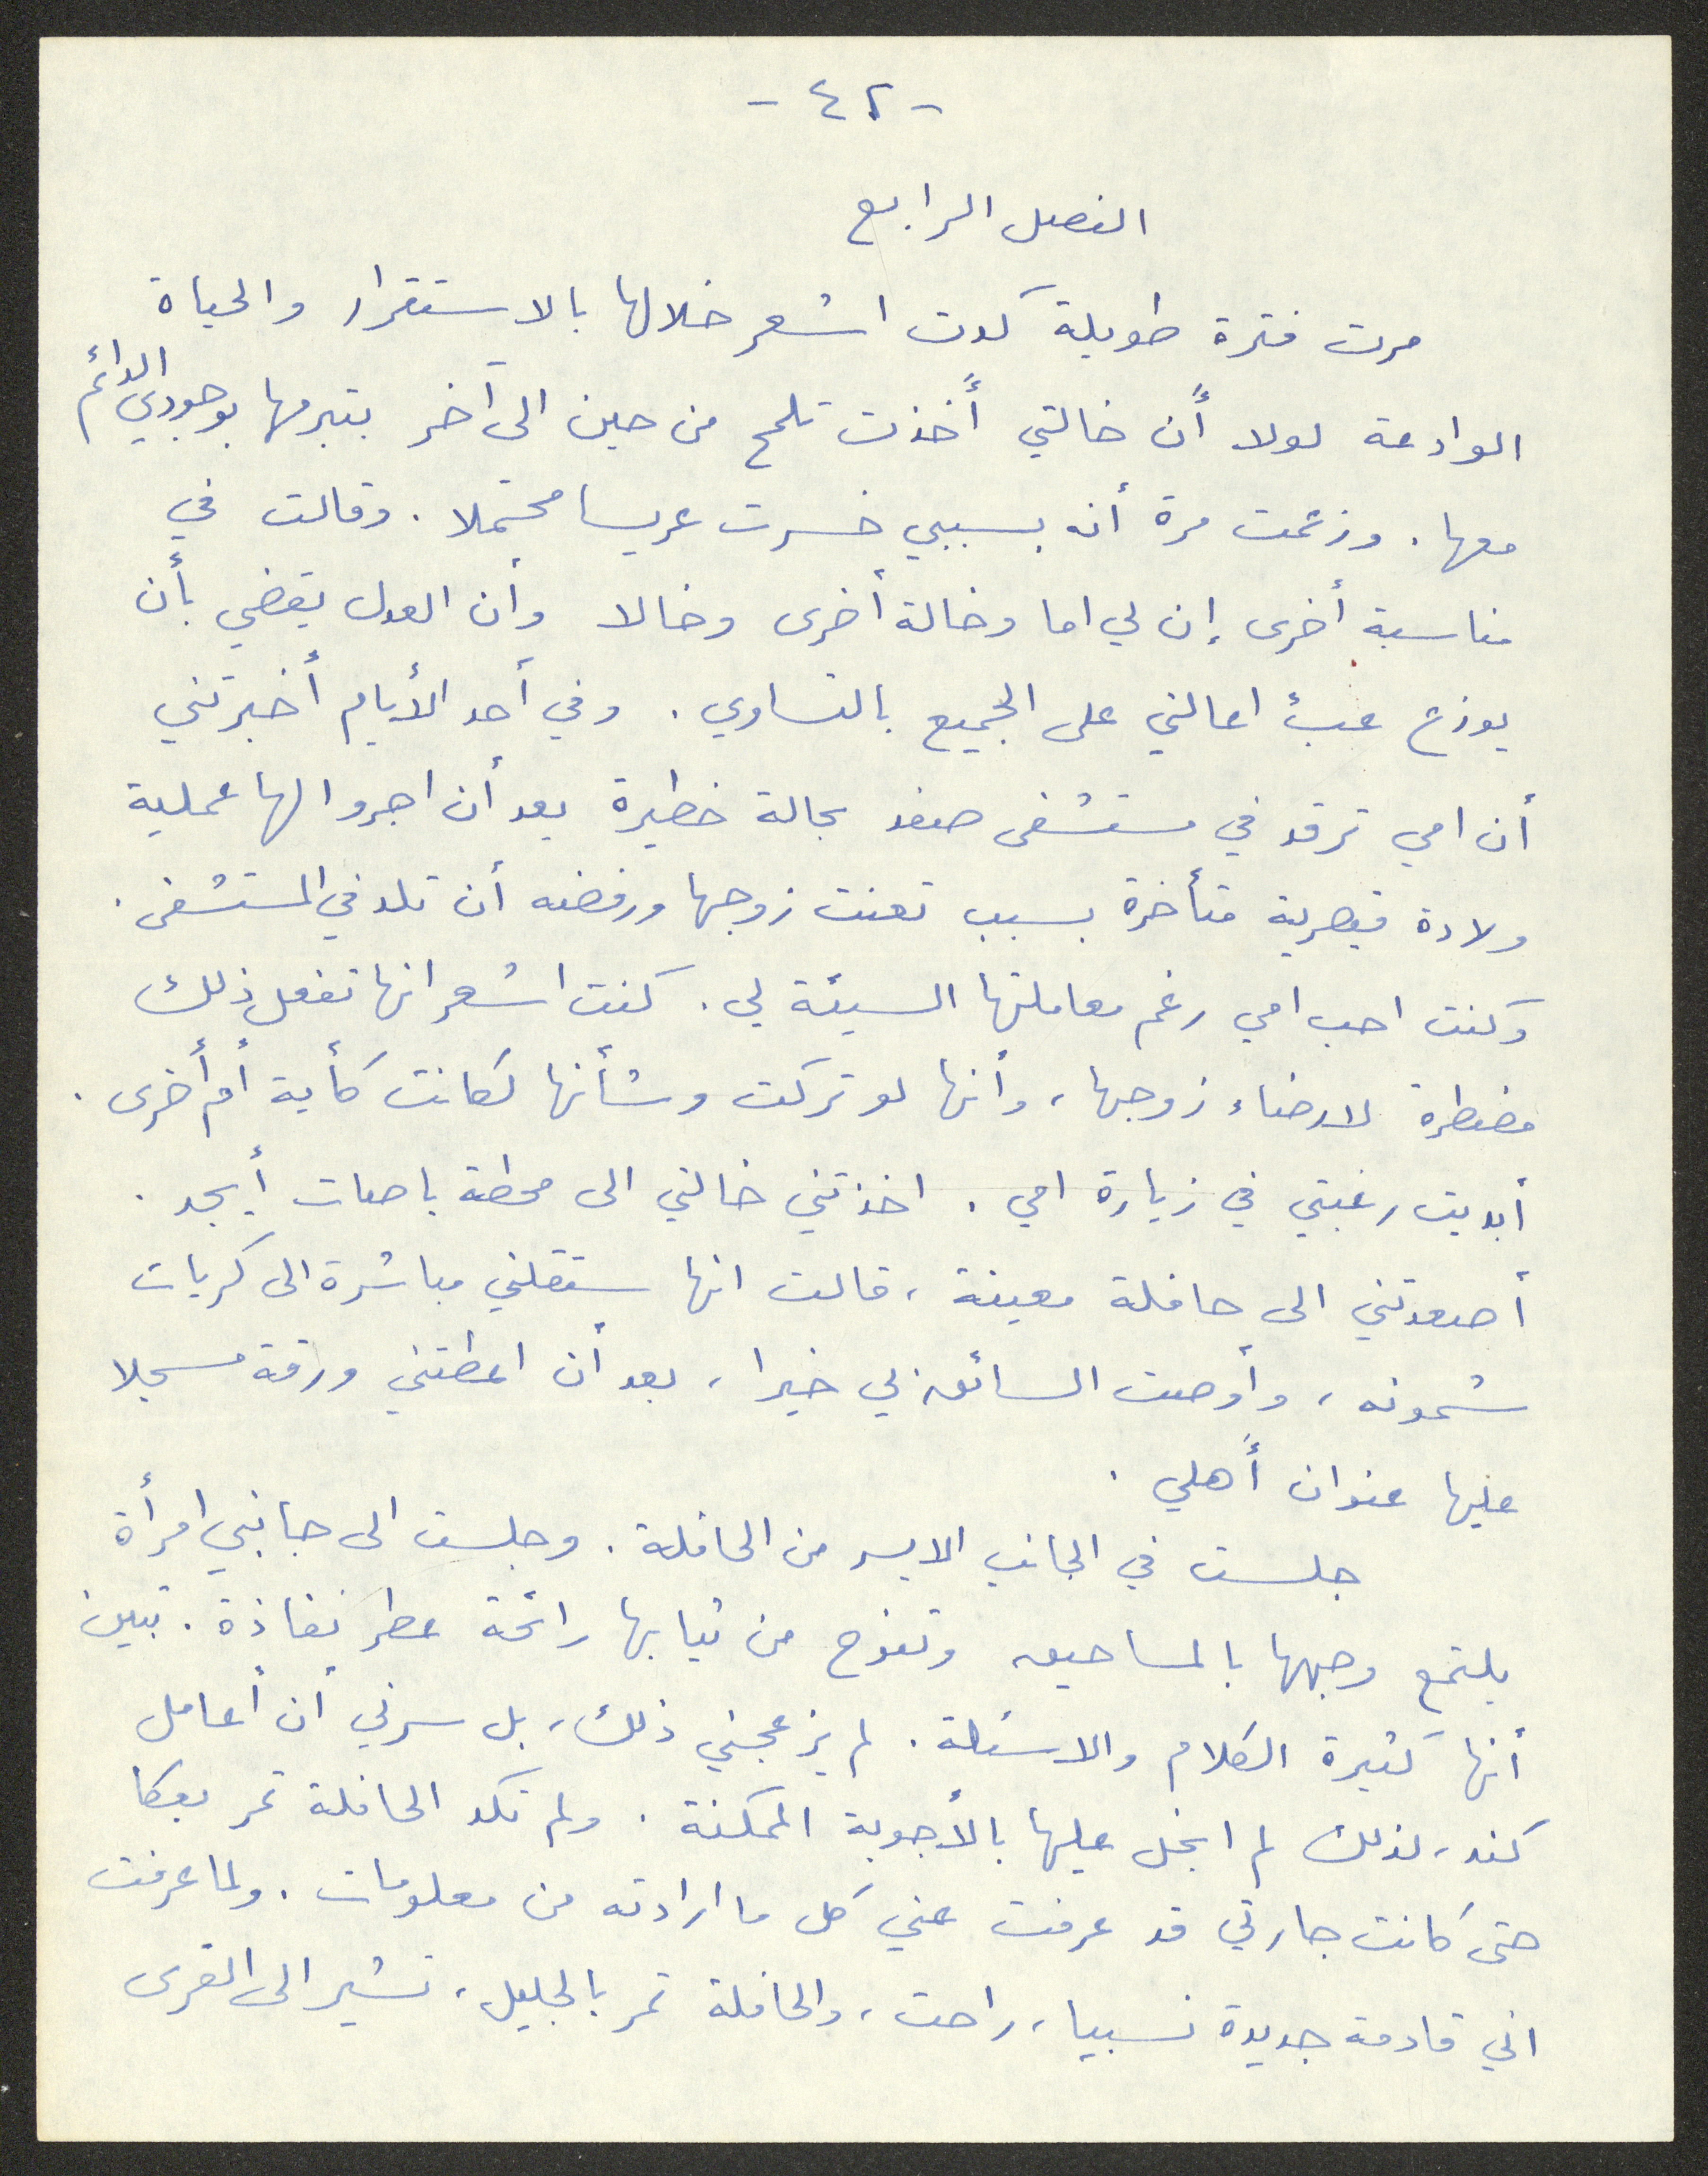 - ٤٢ -
الفصل الرابع
مرت فترة طويلة كدت اشعر خلالها بالاستقرار والحياة
الوادعة لولا أن خالتي أخذت تلمح من حين الى آخر بتبرمها بوجودي الدائم
معها. وزعمت مرة أنه بسببي خسرت عريسا محتملا. وقالت في
مناسبة أخرى إن لي اما وخالة أخرى وخالا وأن العدل يقضي بأن
يوزع عبئ اعالتي على الجميع بالتساوي. وفي أحد الأيام أخبرتني
أن امي ترقد في مستشفى صفد بحالة خطيرة بعد أن اجروا لها عملية
ولادة قيصرية متأخرة بسبب تعنت زوجها ورفضه أن تلد في المستشفى.
وكنت احب امي رغم معاملتها السيئة لي. كنت اشعر انها تفعل ذلك
مضطرة لارضاء زوجها، وأنها لو تركت وشأنها لكانت كأية أم أخرى.
أبديت رغبتي في زيارة امي. اخذتني خالتي الى محطة باصات أيجد.
أصعدتني الى حافلة معينة، قالت انها ستقلني مباشرة الى كريات
شمونه، وأوصت السائق بي خيرا، بعد أن اعطتني ورقة مسجلا
عليها عنوان أهلي.
جلست في الجانب الايسر من الحافلة. وجلست الى جانبي امرأة
يلتمع وجهها بالمساحيق وتفوح من ثيابها رائحة عطر نفاذة. تبين
أنها كثيرة الكلام والاسئلة. لم يزعجني ذلك، بل سرني أن أعامل
كند، لذلك لم ابخل عليها بالأجوبة الممكنة. ولم تكد الحافلة تمر بعكا
حتى كانت جارتي قد عرفت عني كل ما ارادته من معلومات. ولما عرفت
اني قادمة جديدة نسبيا، راحت، والحافلة تمر بالجليل، تشير الى القرى